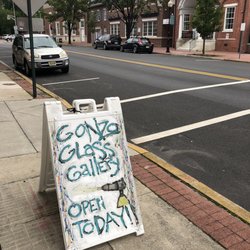 GONZO
GLASS
GALLERY
OPEN
TODAY!